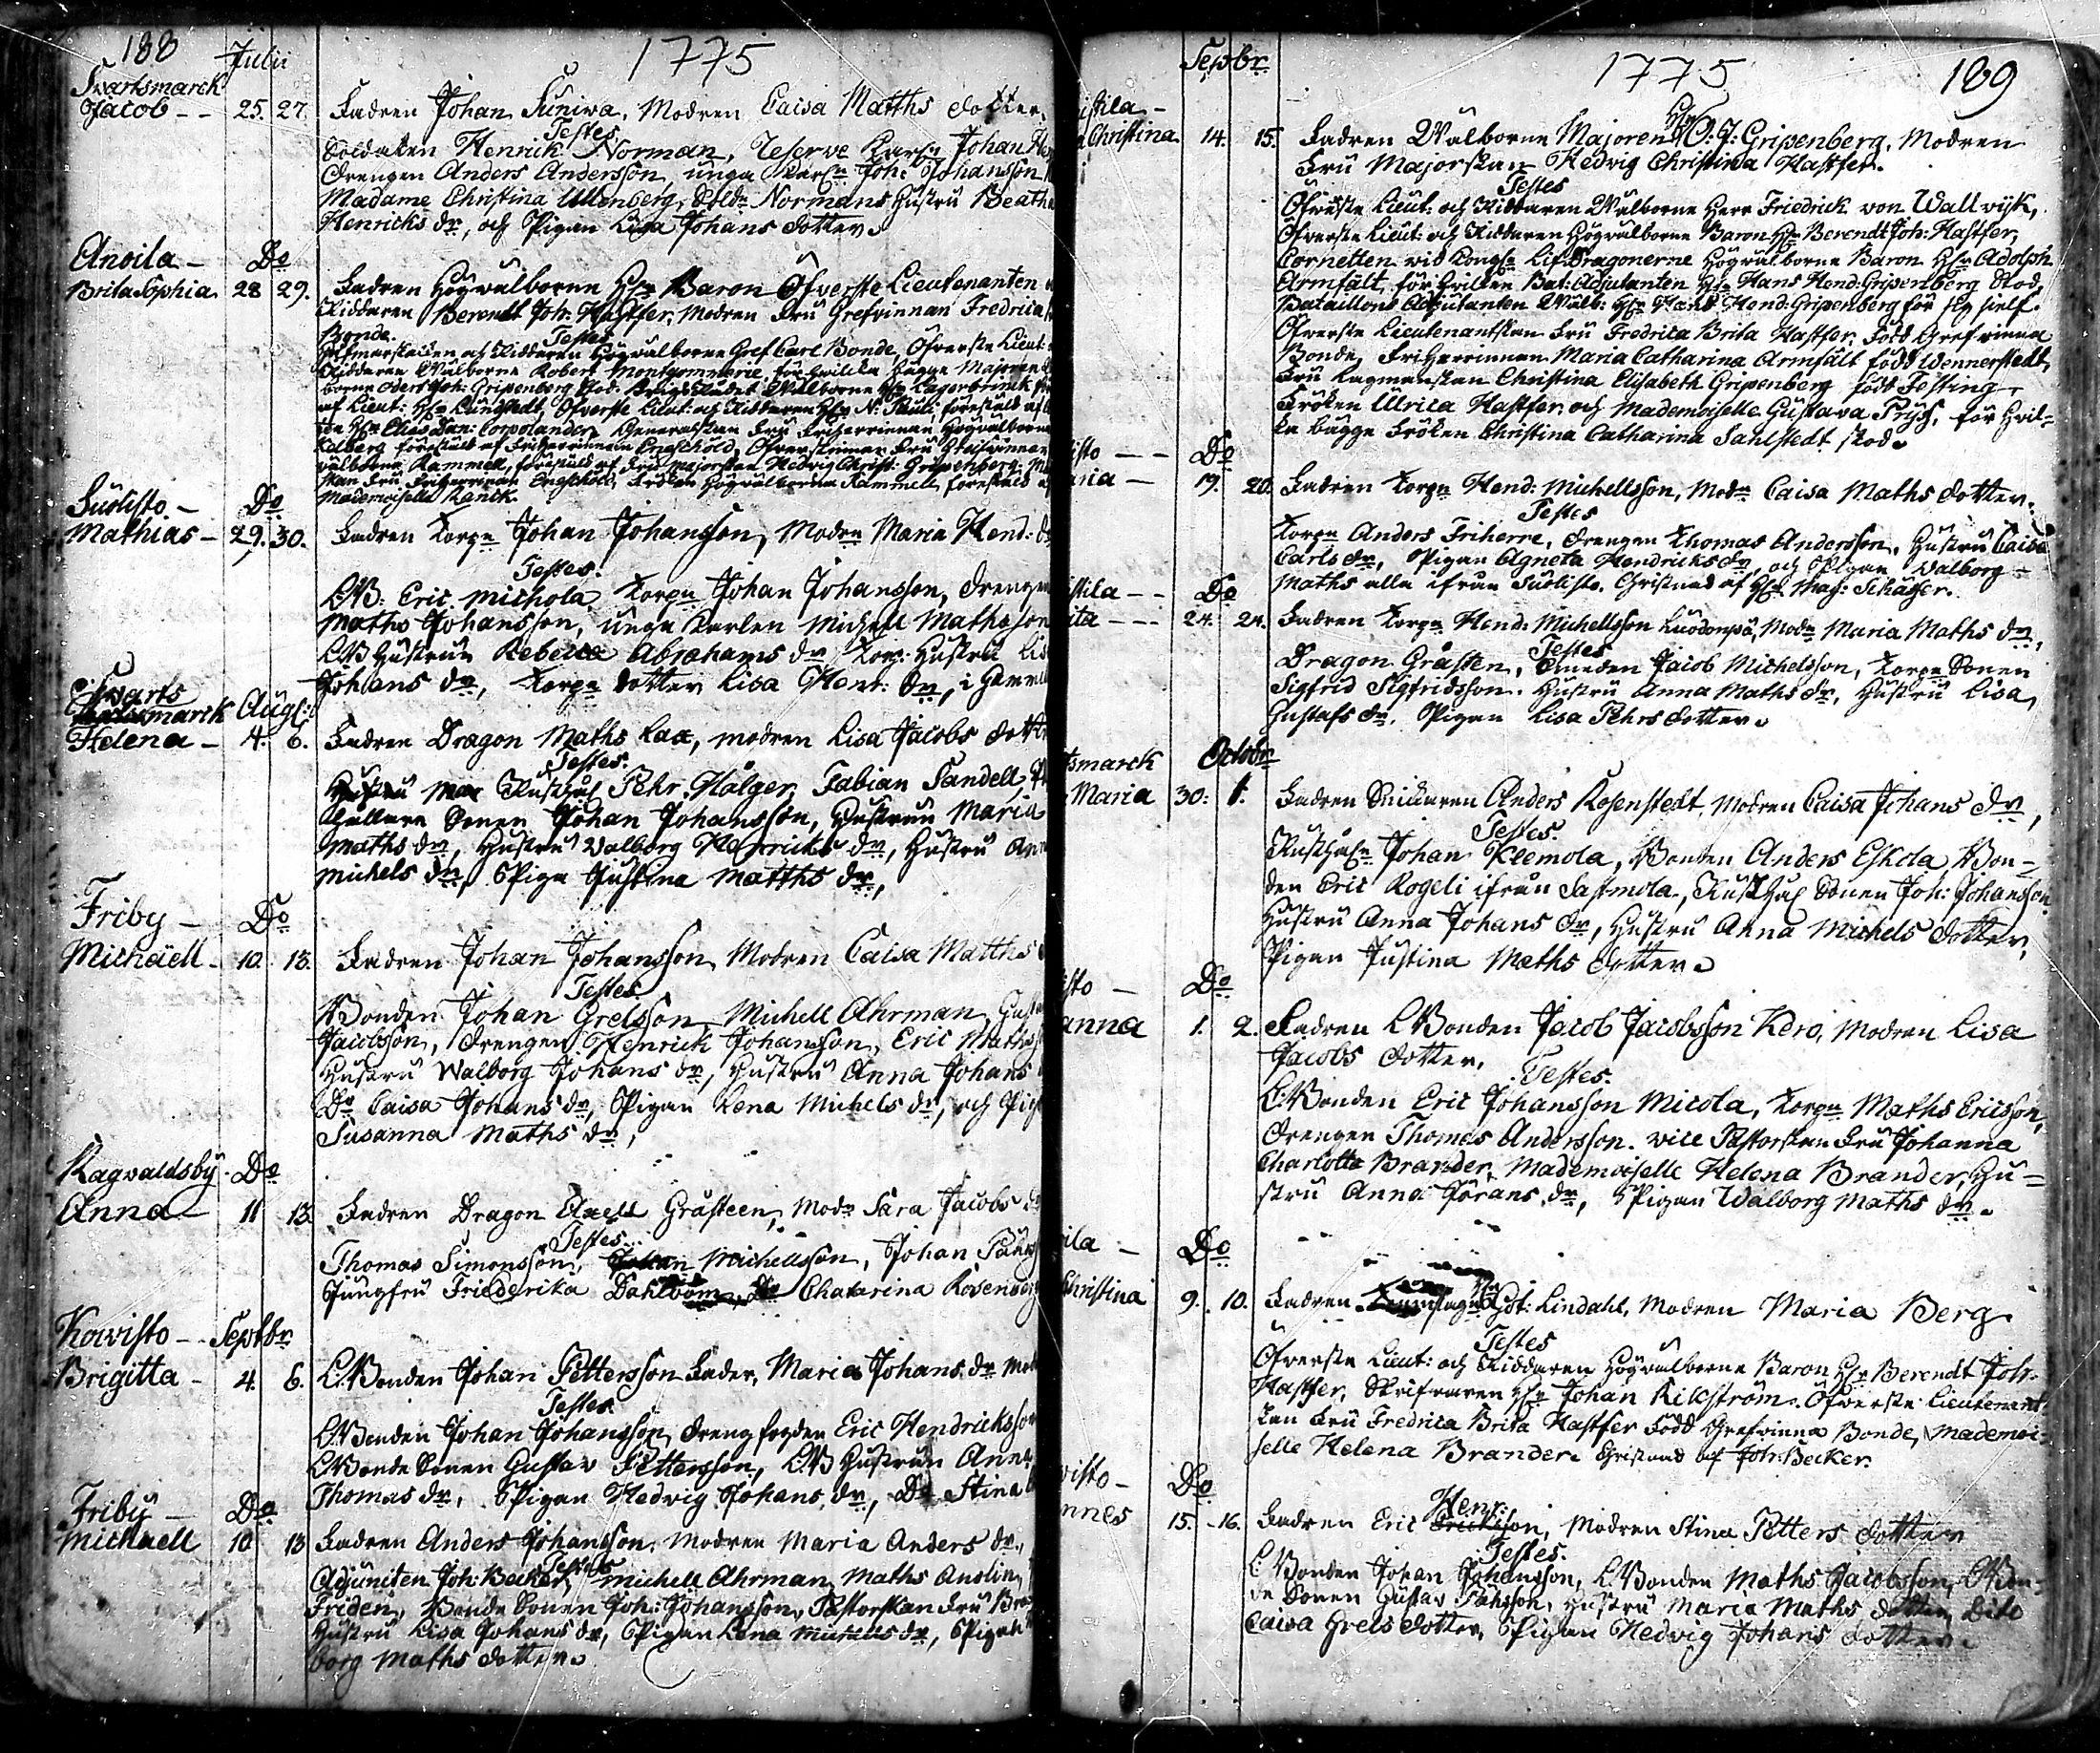 188 Julii 1775
Svartsmarck
Jacob - - 25. 27. Fadren Johan Suniwa, Modren Caisa Matths dotter.
Testes
Soldaten Henrick Norman, Reserve Karln Johan
Drengen Anders Andersson, unga Karln Joh: Johansson
Madame Christina Ullenberg, Soldn Normans Hustru Beatha
Henricks dr, och Pigan Lisa Johans dotter.
Ansila - Do
Brita Sophia 28 29. Fadren Högvälborne Hr Baron Öfverste Lieutenanten
Riddaren Berendt Joh: Hastfer, Modren Fru Grefvinnan Fredrica
Bonde. Testes
och Riddaren Högvälborne Gref Carl Bonde, Öfverste Lieut:
Riddaren Välborne Robert Montgommerie, för hvilka bägge Majoren
borne Odert Joh: Gripenberg stod. Välborne Hr Lagerbrinck
af Lieut: Hr Lungstedt, Öfverste Lieut: och Riddaren Hr N: Pauli förestäld af
Hr Elias Dan: Corpolander, Generalskan Fru Friherrinnan Högvälborne
Kalberg förestäld af Friherrinnan Engeschöld, Öfverstinnan Fru Grefvinnan
välborne Rammell, förestäld af Fru Majorskan Hedvig Christ: Gripenberg.
skan Fru Friherrinnan Engeschöld, Fröken Högvälborna Rammell, förestäld
Mademoiselle Ranck.
Suolisto - Do
Mathias - 29. 30. Fadren Korpn Johan Johansson, Modrn Maria Hend: dr
Testes.
LB: Eric Michola, Korpn Johan Johansson, Drengen
Maths Johansson, unga Karlen Michell Mathsson
LB Hustrun Rebecca Abrahams dr Korp: Hustru Lisa
Johans dr, Korpn dotter Lisa Henr: dr, i
Svarts
marck Augl:
Helena - 4. 6. Fadren Dragon Maths Lax, modren Lisa Jacobs dotter
Testes.
Rusthål Pehr Hålger, Fabian Sandell,
Sonen Johan Johansson, Hustrun Maria
Maths dr, Hustru Valborg Henricks dr, Hustru Anna
Michels dr, Piga Justina Matths dr,
Friby - Do
Michäell - 10. 13. Fadren Johan Johansson, Modren Caisa Matths
Testes
Bonden Johan Grelsson, Michell Ahrman,
Jacobsson, Drengen Henrick Johansson, Eric Maths
Hustru Walborg Johans dr, Hustru Anna Johans
Do Caisa Johans dr, Pigan Lena Michels dr, och Pig
Susanna Maths dr,
Ragvaldsby - Do
Anna - 11 13. Fadren Dragon Axell Gråsteen, Modn Sara Jacobs dr
Testes.
Thomas Simonsson, Johan Michellsson, Johan
Jungfru Friederika Dahlbom, Do Chatarina Rosenberg
Kowisto - Septbr
Brigitta - 4. 6. LBonden Johan Pettersson Fader, Maria Johans dr Mod
Testes.
LBonden Johan Johansson, Drengfogden Eric Hendricksson
LBonde Sonen Gustav Pettersson, LB Hustrun Anna
Thomas dr, Pigan Hedvig Johans dr, Do Stina
Friby - Do
Michaell 10 13 Fadren Anders Johansson, Modren Maria Anders dr,
Testes
Adjuncten Joh: Becker, Michell Ahrman, Maths Anolin,
Friden, Bonde Sonen Joh: Johansson, Pastorskan Fru
Hustru Lisa Johans dr, Pigan Lena Michels dr, Pigan
borg Maths dotter.
Sepbr 1775 189
stila -
Christina 14. 15. Fadren Wälborne Majoren Hr O: J: Gripenberg, Modren
Fru Majorskan Hedvig Christina Hastfer.
Testes
Öfverste Lieut: och Riddaren Wälborne Herr Friedrick von Wallvijk,
Öfverste Lieut: och Riddaren Högvälborne Baron Hr Berendt Joh: Hastfer,
Cornetten vid Kongl: LifDragonerne Högvälborne Baron Hr Adolph
Armfält, för hvilken Bat: Adjutanten Hr Hans Hend: Gripenberg stod,
Bataillons Adjutanten Wälb: Hr Hans Hend: Gripenberg för sig sielf.
Öfverste Lieutenantskan Fru Fredrica Brita Hastfer, född Grefvinna
Bonde, Friherrinnan Maria Catharina Armfält född Wennerstedt,
Fru Lagmanskan Christina Elisabeth Gripenberg född Festing,
Fröken Ulrica Hastfer och Mademoiselle Gustava Prijss, för hvil-
ka bägge Fröken Christina Catharina Sahlstedt stod.
isto - - - Do
aria - 19. 20. Fadren Korpn Hend: Michellsson, Modn Caisa Maths dotter.
Testes
Korpn Anders Friherre, drengen Thomas Andersson, Hustru Caisa
Carls dr, Pigan Agneta Hendricks dr, och Pigan Valborg
Maths alla ifrån Suolisto. Christnad af Hr Mag: Schäffer.
stila - - Do
ita - - - 24. 24. Fadren Korpn Hend: Michellsson, Modn Maria Maths dr,
Testes
Dragon Gråsten, Smeden Jacob Michelsson, Korpn Sonen
Sigfrid Sigfridsson. Hustru Anna Maths dr, Hustru Lisa
Gustafs dr, Pigan Lisa Pehrs dotter.
tsmarck Octobr
Maria 30: 1. Fadren Snickaren Anders Rosenstedt, Modren Caisa Johans dr,
Testes
Rusthåln Johan Klemola, Bonden Anders Eskola, Bon-
den Eric Rogeli ifrån Sastmola, Rusthål Sonen Joh: Johansson.
Hustru Anna Johans dr, Hustru Anna Michels dotter,
Pigan Justina Maths dotter.
isto - Do
anna 1. 2. Fadren LBonden Jacob Jacobsson Kero, Modren Lisa
Jacobs dotter. Testes.
LBonden Eric Johansson Micola, Korpn Maths Ericsson,
drengen Thomas Andersson. vice Pastorskan Fru Johanna
Charlotta Brander, Mademoiselle Helena Brander, Hu-
stru Anna Jörans dr, Pigan Walborg Maths dr.
ila - Do
Christina 9. 10. Fadren Hr Got: Lindahl, Modren Maria Berg.
Testes
Öfverste Lieut: och Riddaren Högvälborne Baron Hr Berendt Joh:
Hastfer, Skrifvaren Hr Johan Kilkström. Öfverste Lieutenant-
skan Fru Fredrica Brita Hastfer Född Grefvinna Bonde, Mademoi-
selle Helena Brander. Christnad af Joh: Becker.
visto - Do
nnes 15. 16. Fadren Eric Henr: Ericksson, Modren Stina Petters dotter
Testes.
LBonden Johan Johansson, LBonden Maths Jacobsson, Bon-
de Sonen Gustav Påhsson, Hustru Maria Maths dotter, Dito
Caisa Grels dotter, Pigan Hedvig Johans dotter.